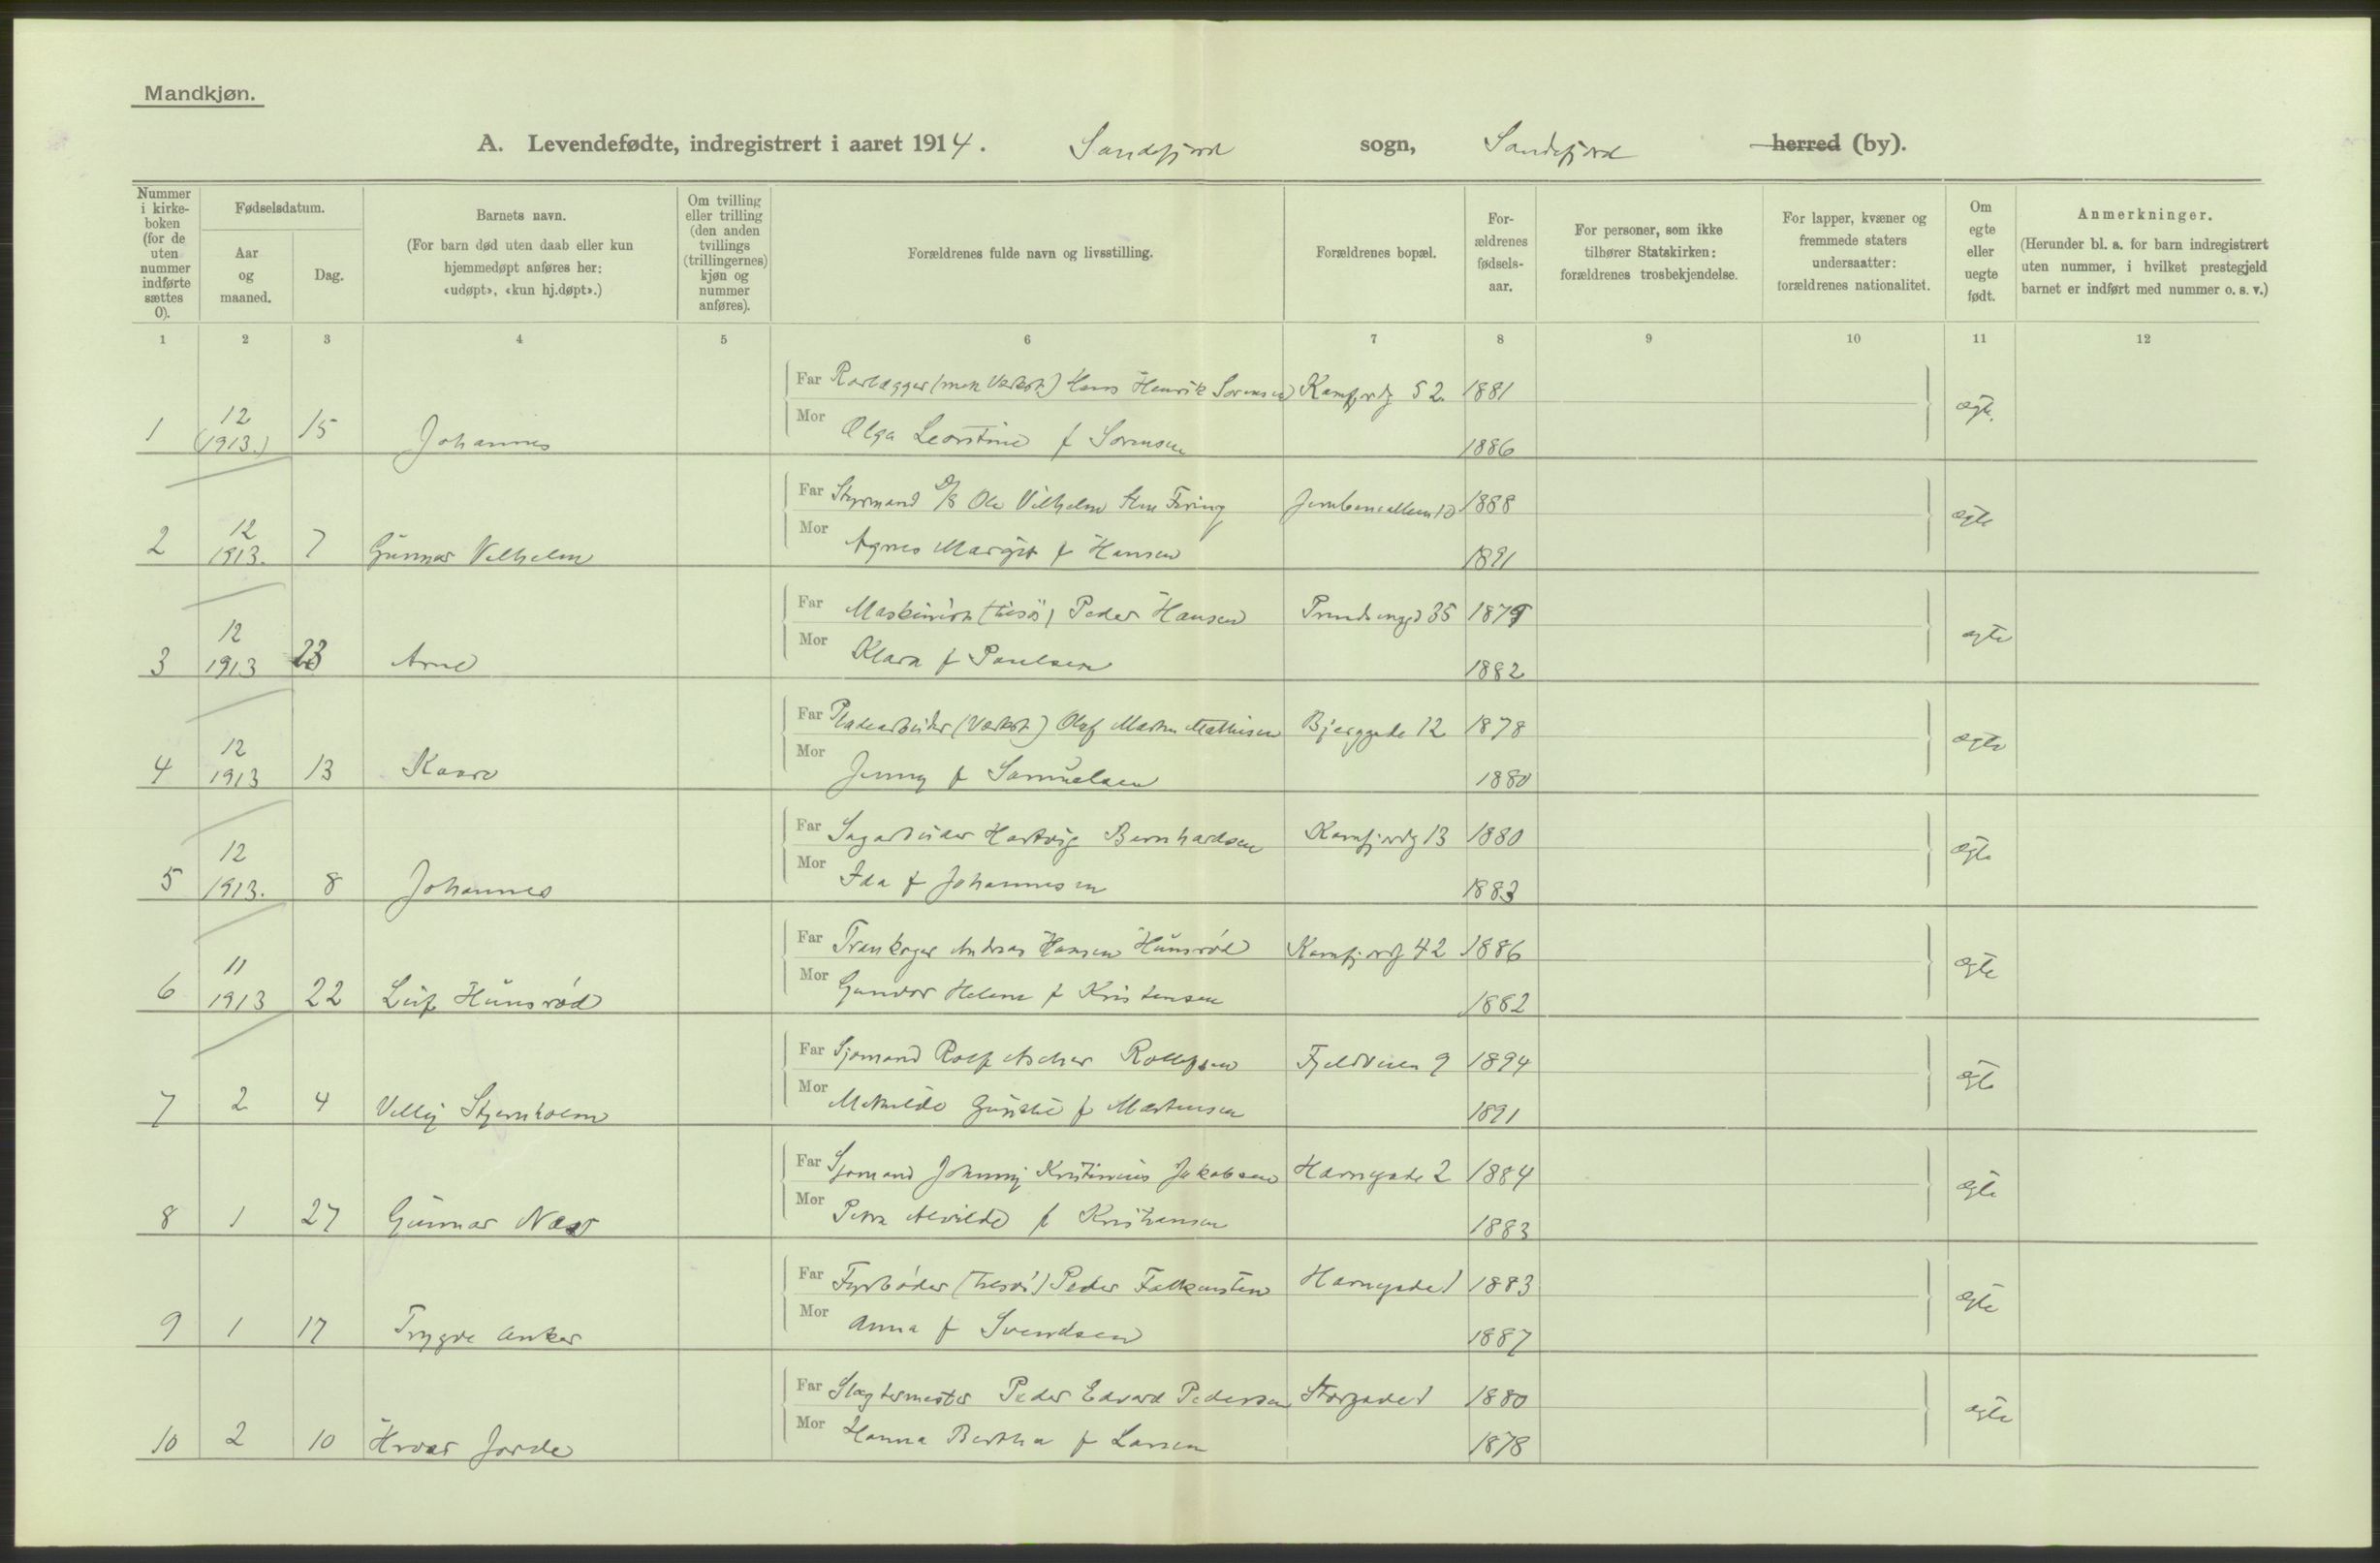 Mandkjøn.
A. Levendefødte, indregistrert i aaret 1914. Sandefjord sogn, Sandefjord herred (by).
Nummer i kirke-boken (for de uten nummer indførte sættes 0).
Fødselsdatum.
Aar og maaned.
Dag.
Barnets navn.
(For barn død uten daab eller kun hjemmedøpt anføres her: «udøpt», «kun hj.døpt».)
Om tvilling eller trilling (den anden tvillings (trillingernes) kjøn og nummer anføres).
Forældrenes fulde navn og livsstilling.
Forældrenes bopæl.
For-ældrenes fødsels-aar.
For personer, som ikke tilhører Statskirken: forældrenes trosbekjendelse.
For lapper, kvæner og fremmede staters undersaatter: forældrenes nationalitet.
Om egte eller uegte født.
Anmerkninger.
(Herunder bl. a. for barn indregistrert uten nummer, i hvilket prestegjeld barnet er indført med nummer o. s. v.)
1 2 3 4 5 6 7 8 9 10 11 12
Far Rørlægger (mek Værkst) Hans Henrik Sørensen Kamfjordg 52 1881
1 12 (1913.) 15 Johannes Mor Olga f Sørensen 1886 egte
Far Styrmand D/S Ole Vilhelm Firing 10 1888
2 12 1913. 7 Gunnar Vilhelm Mor Agnes Margit f Hansen 1891 egte
Far Maskinist Peder Hansen 35 1879
3 12 1913 23 Arne Mor Klara f Paulsen 1882 egte
Far Pladearbeider (Værkst) Olaf Martin Mathisen Bjerggade 12 1878
4 12 1913 13 Kaare Mor Jenny f Samuelsen 1880 egte
Far Sagarbeider Hartvig Bernhardsen Kamfjordg 13 1880
5 12 1913. 8 Johannes Mor Ida f Johannesen 1883 egte
Far Trankoger Andreas Hansen Hunsrød Kamfjordg 42 1886
6 11 1913 22 Leif Hunsrød Mor Gunvor Helene f Kristensen 1882 egte
Far Sjømand Rolf Ascher Rolfsen Fjeldveien 9 1894
7 2 4 Villy Stjernholm Mor Mathilde f Martinsen 1891 egte
Far Sjømand Johnny Kristinius Jakobsen Havnegade 2 1884
8 1 27 Gunnar Næss Mor Petra Alvilde f Kristiansen 1883 egte
Far Fyrbøder Peder Falkensten Havnegade 1 1883
9 1 17 Trygve Anker Mor Anna f Svendsen 1887 egte
Far Slagtermester Peder Edvard Pedersen Storgade 1 1880
10 2 10 Hroar Jarde Mor Hanna Bertha f Larsen 1878 egte